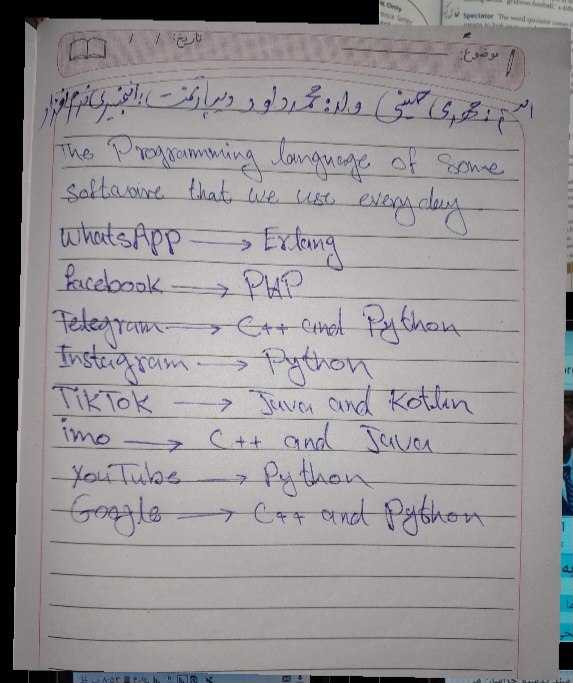 تاریخ: / /
موضوع:
اسم: مهدی حسینی ولد: محمد داود دیپارتمنت: انجنیری نرم افزار
The Programming language of some
software that we use everyday
WhatsApp → Erlang
facebook → PHP
Telegram → C++ and Python
Instagram → Python
TikTok → Java and Kotlin
imo → C++ and Java
YouTube → Python
Google → C++ and Python
K Only
Spectator The word spectator comes